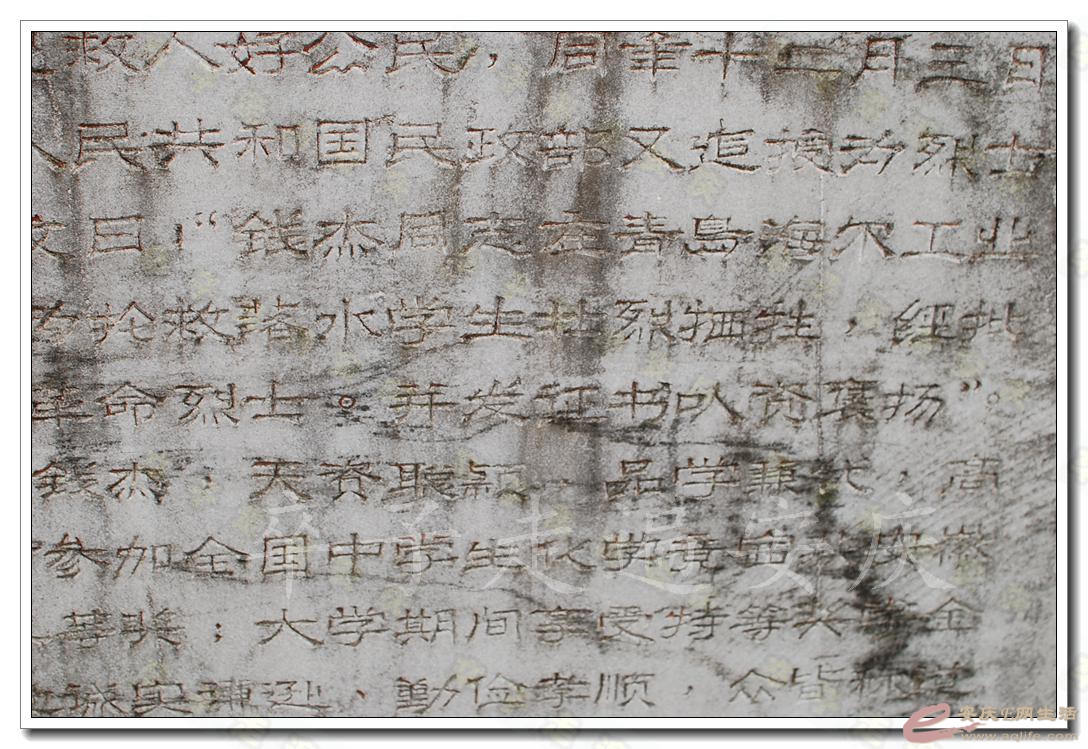 救人好公民，同年十二月三日
人民共和国民政部又追授为烈士
文曰：“钱杰同志在青岛海尔工业
为抢救落水学生壮烈牺牲，经批
革命烈士。并发证书以资褒扬”。
钱杰，天资聪颖、品学兼优，高
参加全国中学生化学竞赛
等奖；大学期间享受特等奖学金
诚实谦逊、勤俭孝顺，众皆称
卒子走遍安庆
安庆E网生活
www.aqlife.com